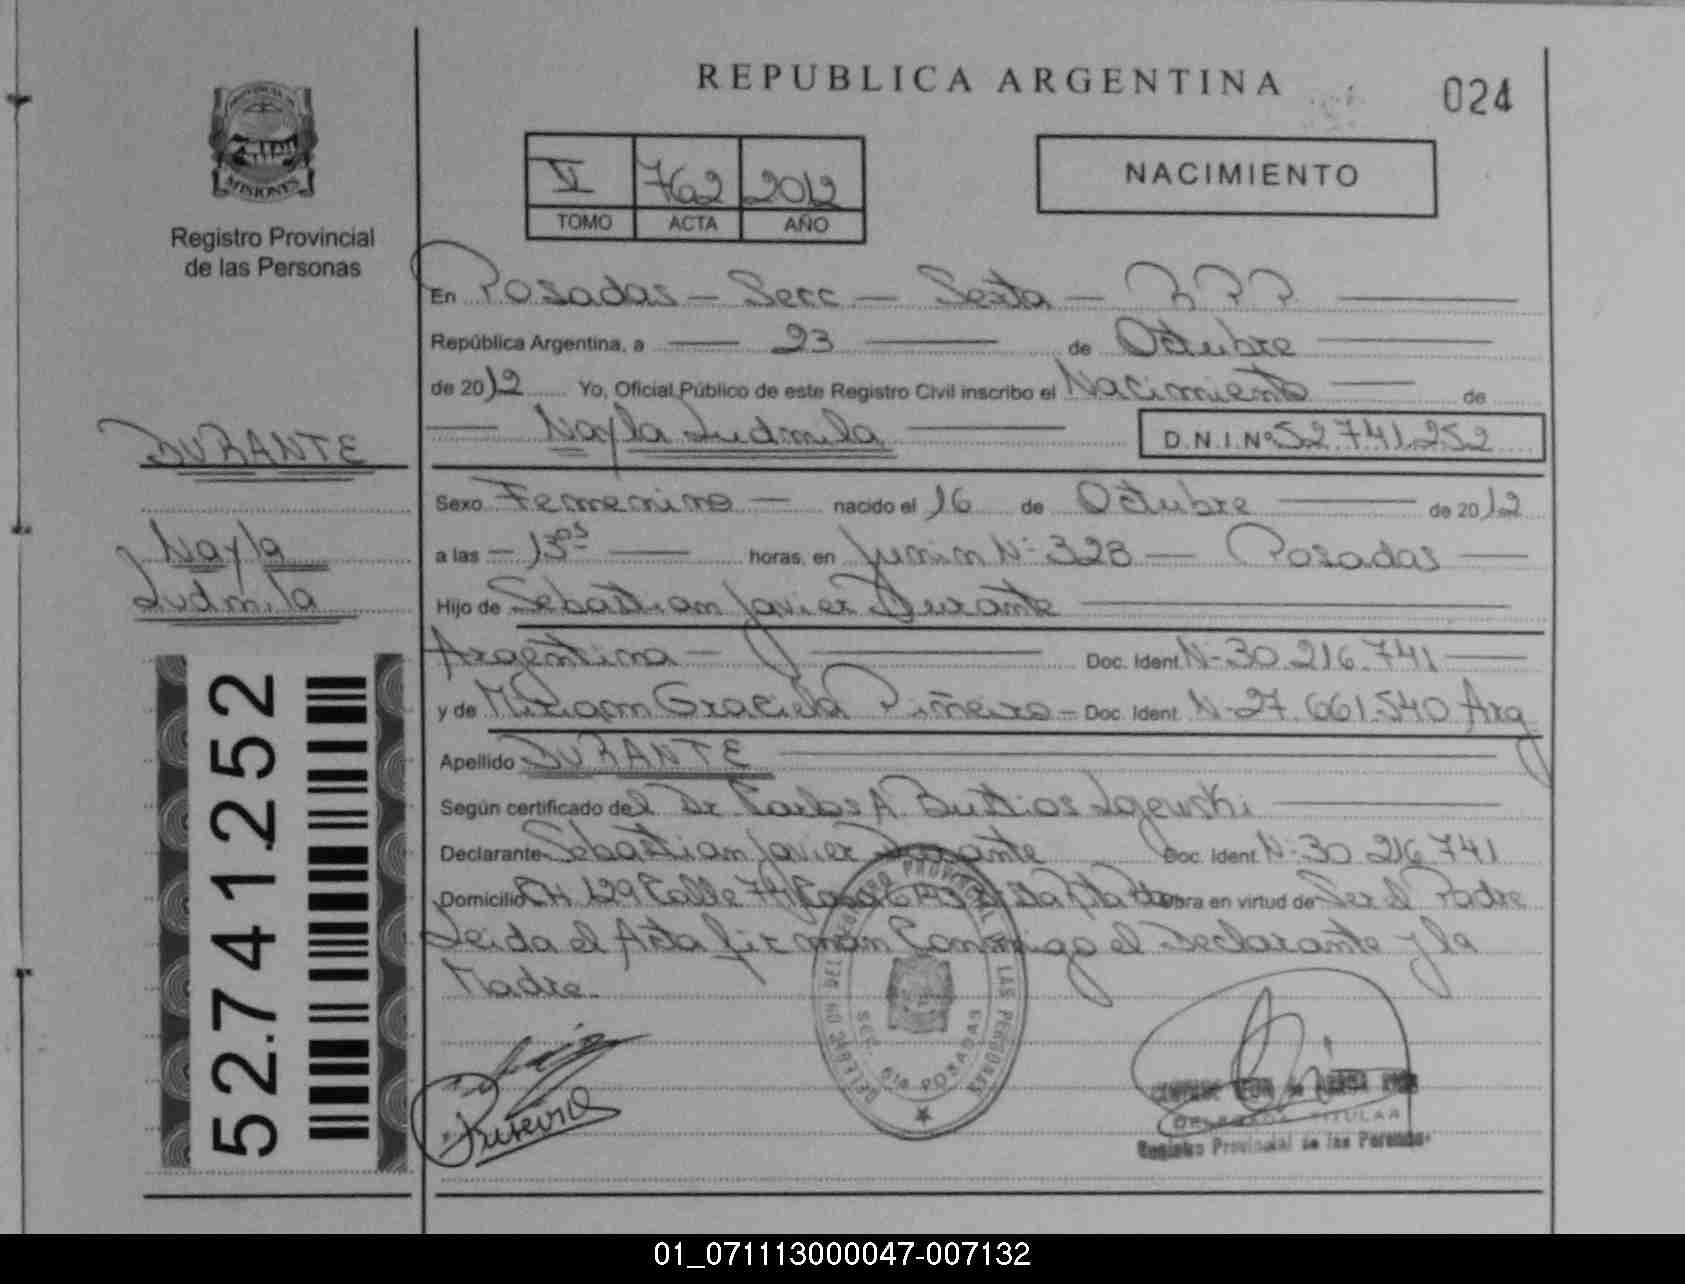 REPUBLICA ARGENTINA
024
PROVINCIA DE
MISIONES
Registro Provincial
de las Personas
VI 762 2012
TOMO ACTA AÑO
NACIMIENTO
En Posadas - Secc - Sexta - R P P
República Argentina, a 23 de Octubre
de 2012 Yo, Oficial Público de este Registro Civil inscribo el Nacimiento de
Nayla Ludmila D.N.I.Nº 52.741.252
DURANTE
Nayla
Ludmila
Sexo Femenino - nacido el 16 de Octubre de 2012
a las - 13 05 horas, en Junin Nº 328 - Posadas
Hijo de Sebastian Javier Durante
Argentina - Doc. Ident Nº 30.216.741
y de Miriam Graciela Piñeiro - Doc. Ident. Nº 27.661.540 Arg
Apellido DURANTE
Según certificado del Dr. Carlos A.
Declarante Sebastian Javier Durante Doc. Ident Nº 30.216.741
Domicilio CH 129 Calle 74 Casa Obra en virtud de Ser el Padre
Leida el Acta firman Conmigo el Declarante y la
Madre.
52.741.252
DELEGACION DEL REGISTRO PROVINCIAL DE LAS PERSONAS
SECC. 6ta POSADAS
DELEGADO TITULAR
Registro Provincial de las Personas
01_071113000047-007132